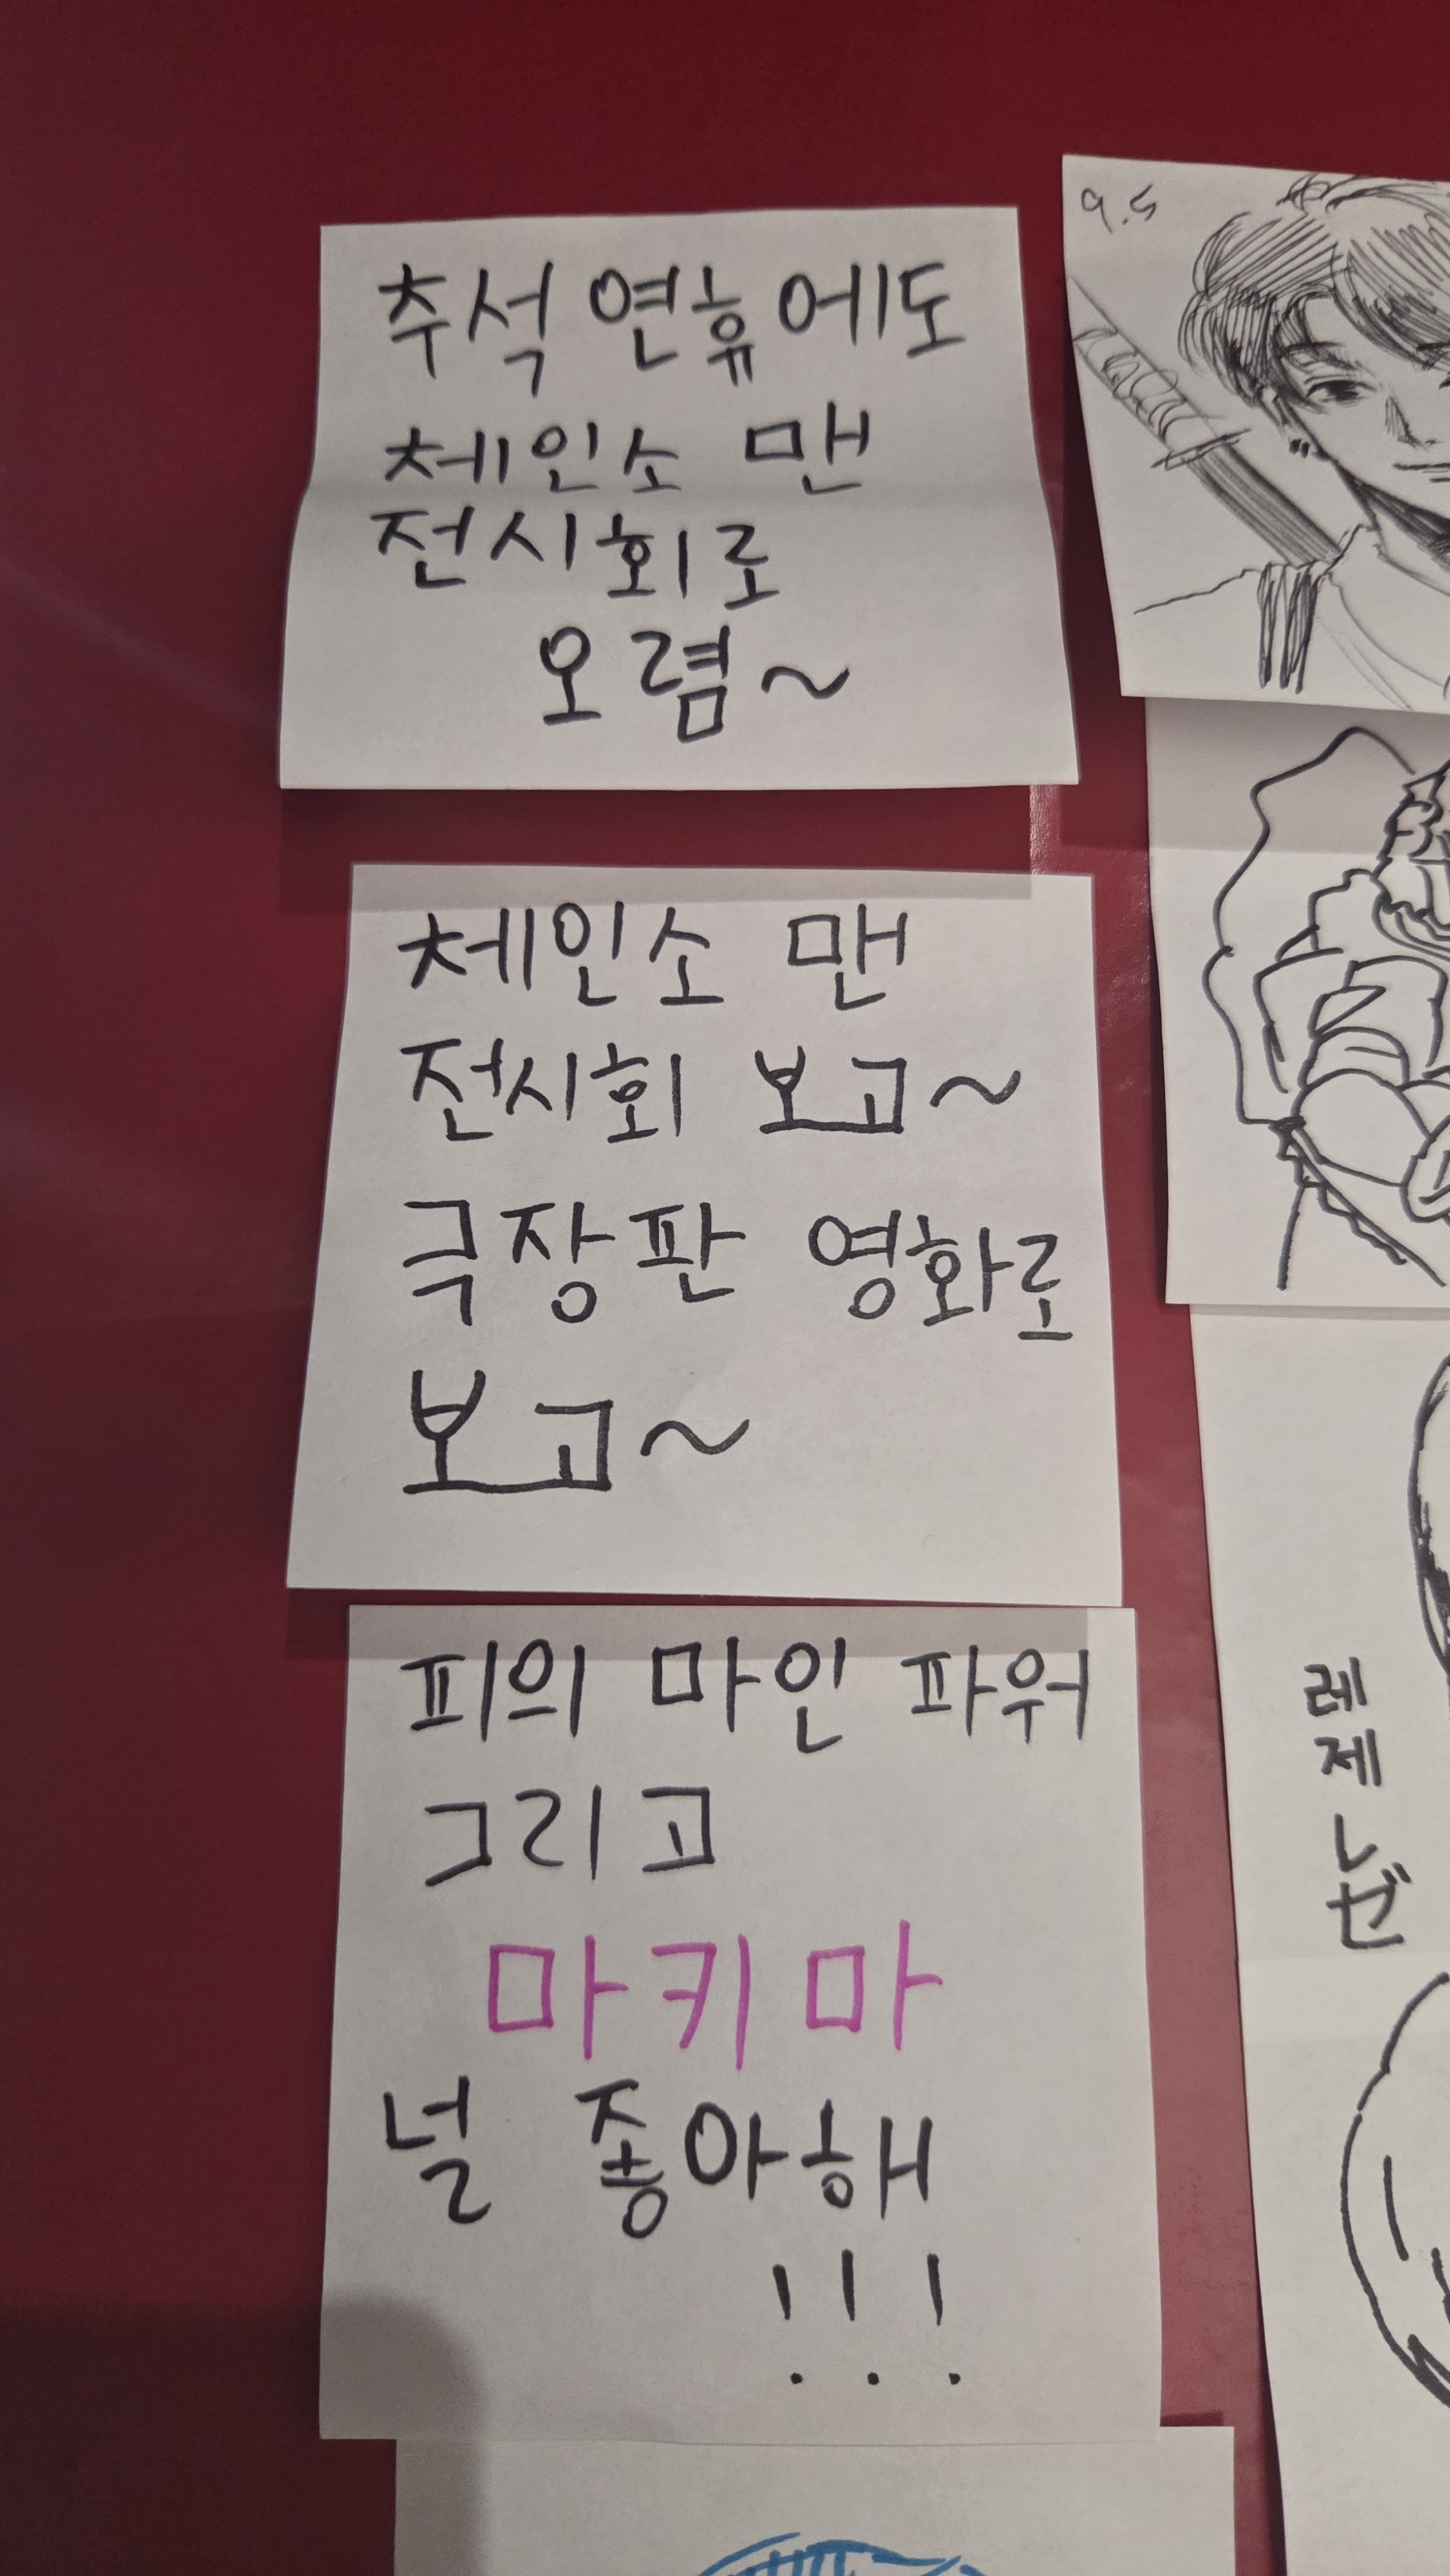 추석 연휴에도
체인소 맨
전시회로
오렴~
체인소 맨
전시회 보고~
극장판 영화로
보고~
피의 마인 파워
그리고
마키마
널 좋아해
!!!
9.5
레제
レゼ